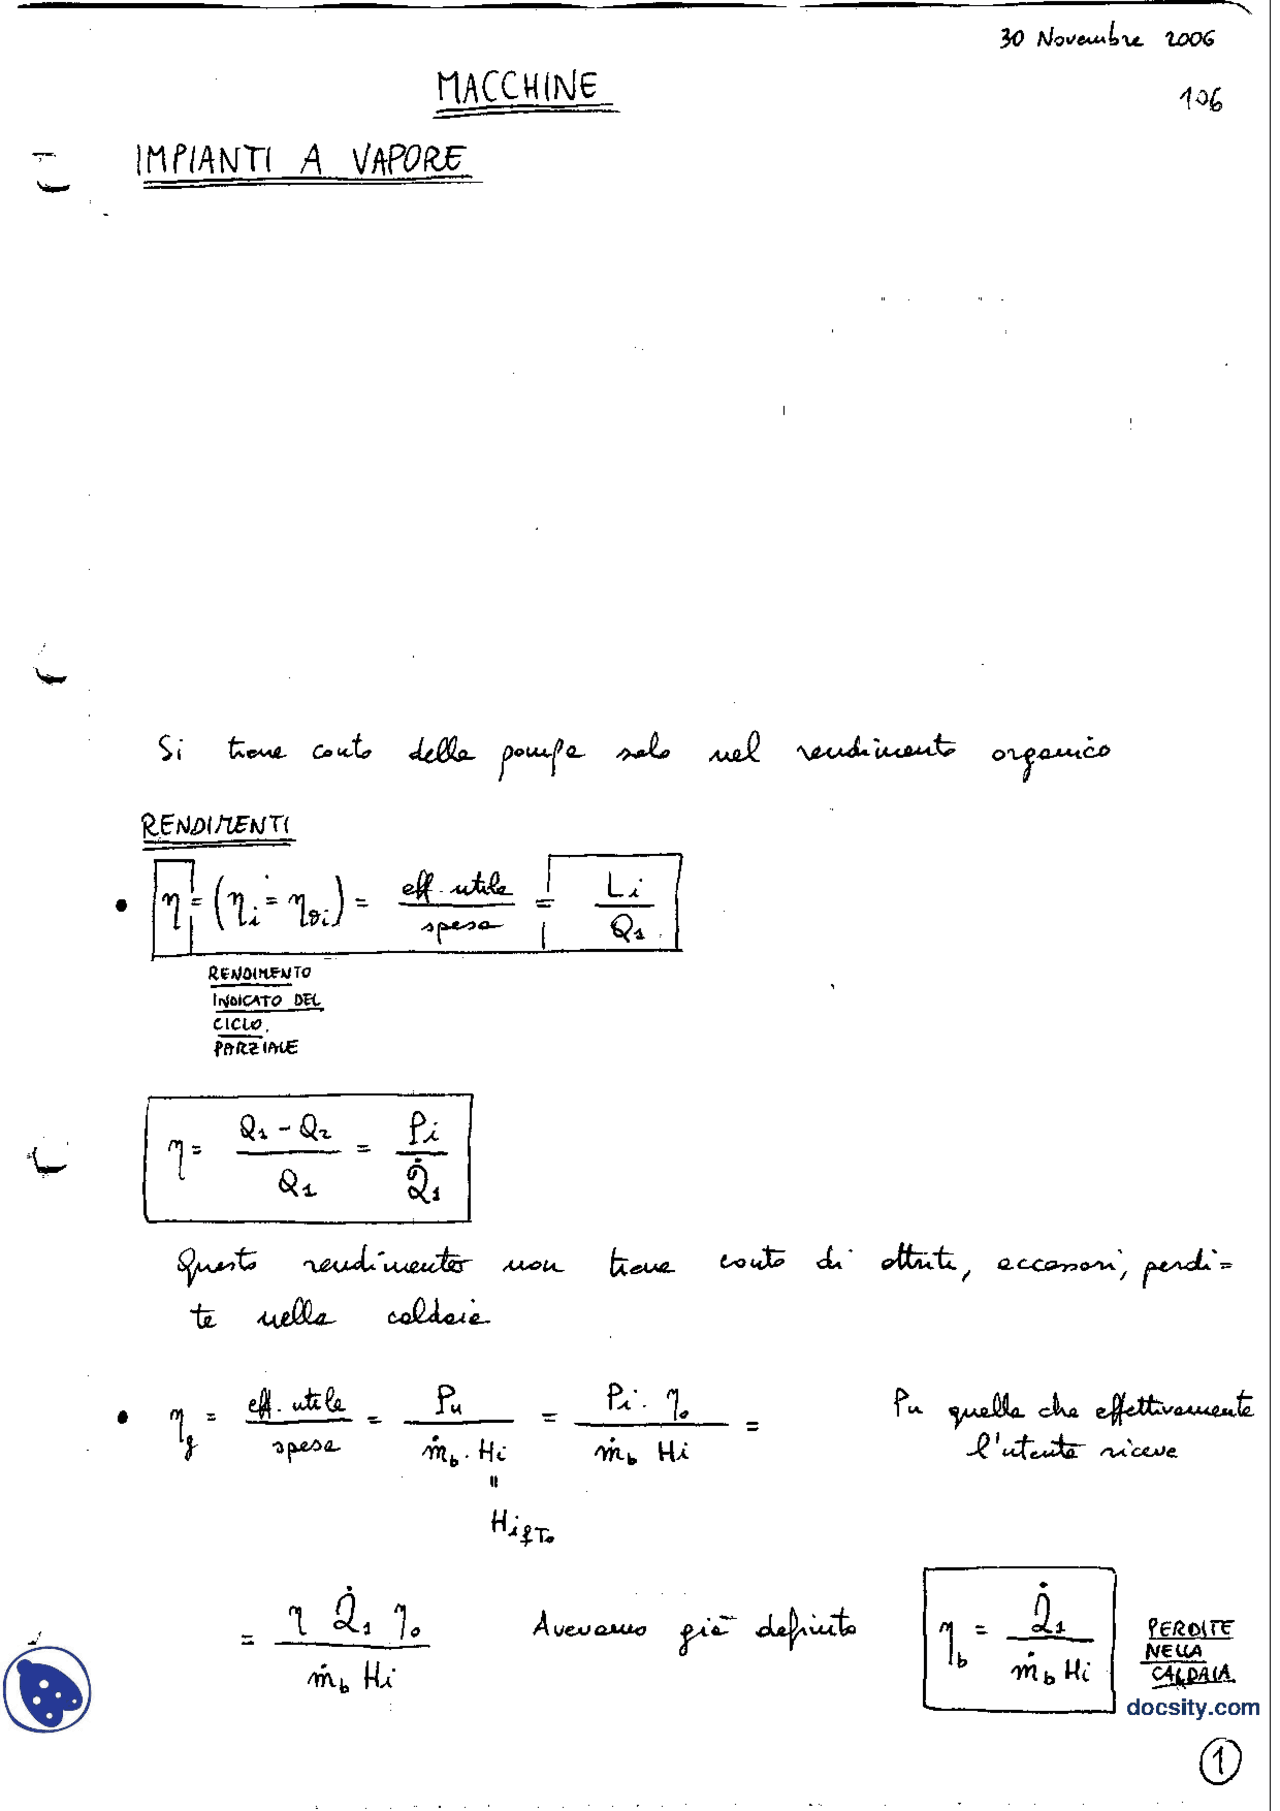 30 Novembre 2006
MACCHINE
106
IMPIANTI A VAPORE
Si tiene conto della pompa solo nel rendimento organico
RENDIMENTI
• η = (η_i = η_θi) = eff. utile / spesa = L_i / Q_1
RENDIMENTO
INDICATO DEL
CICLO.
PARZIALE
η = (Q_1 - Q_2) / Q_1 = P_i / Q̇_1
Questo rendimento non tiene conto di attriti, accessori, perdi=
te nella caldaia
• η_g = eff. utile / spesa = P_u / (ṁ_b · H_i) = (P_i · η_o) / (ṁ_b H_i) =
P_u quella che effettivamente
l'utente riceve
"
H_i f T_o
= (η Q̇_1 η_o) / (ṁ_b H_i)
Avevamo già definito
η_b = Q̇_1 / (ṁ_b H_i)
PERDITE
NELLA
CALDAIA
docsity.com
1